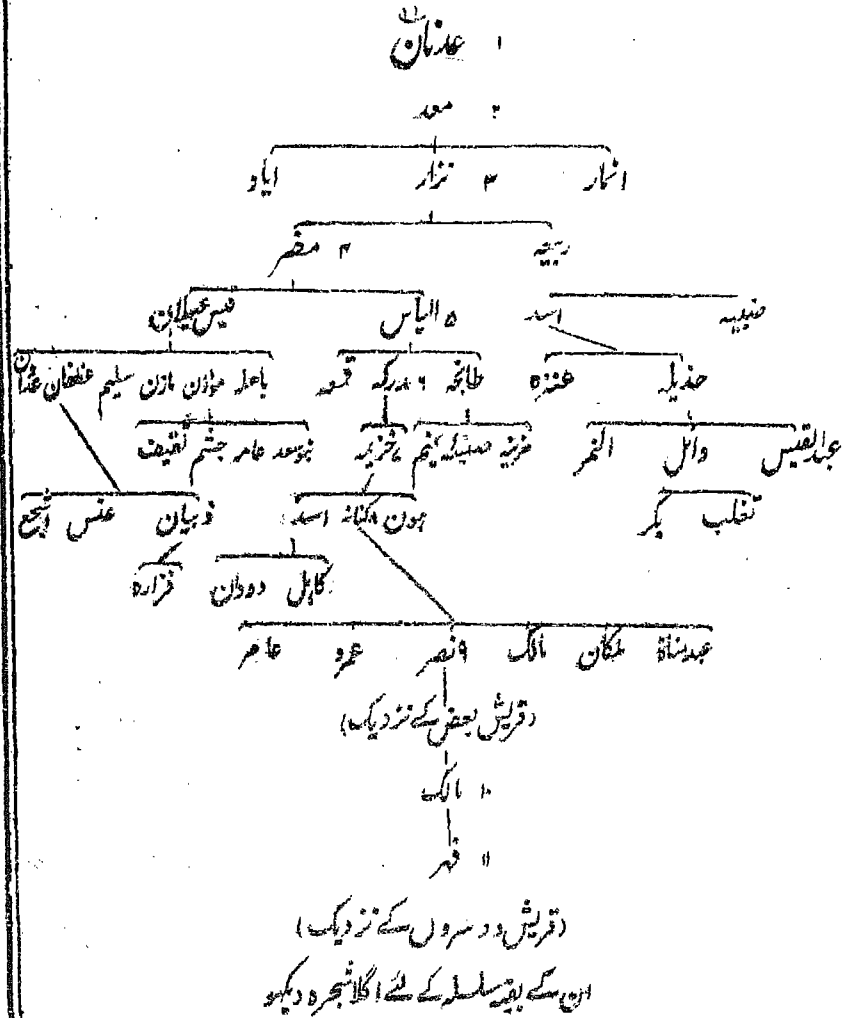 ۱ عدنان
۲ معد
انمار ۳ نزار ایاد
ربیعہ ۴ مضر
ضبیہ اسد ۵ الیاس قیس عیلان
جدیلہ عنزہ طابخہ ۶ مدرکہ قمعہ باہلہ ہوازن مازن سلیم غطفان عدوان
عبدالقیس وائل النمر مزینہ ضبہ تمیم ۷ خزیمہ بنوسعد عامر جشم ثقیف
تغلب بکر ہون ۸ کنانہ اسد ذبیان عبس اشجع
کاہل دودان فزارہ
عبدمناۃ ملکان مالک ۹ نصر عمرو عامر
(قریش بعض کے نزدیک)
۱۰ مالک
۱۱ فہر
(قریش دوسروں کے نزدیک)
ان کے بقیہ سلسلہ کے لئے اگلا شجرہ دیکھو